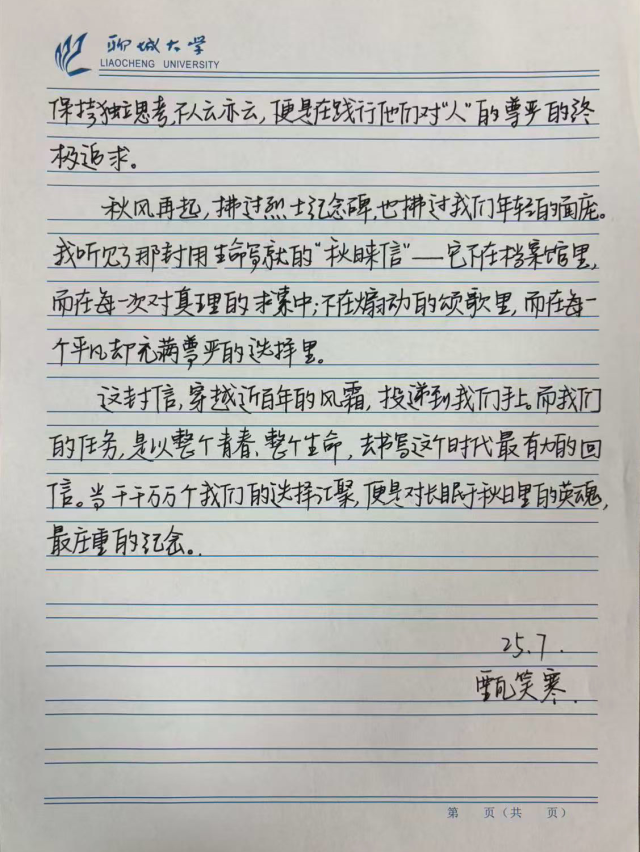 聊城大学
LIAOCHENG UNIVERSITY
保持独立思考,不人云亦云,便是在践行他们对“人”的尊严的终
极追求。
秋风再起,拂过烈士纪念碑,也拂过我们年轻的面庞。
我听见了那封用生命写就的“秋日来信”——它不在档案馆里,
而在每一次对真理的求索中;不在煽动的颂歌里,而在每一
个平凡却充满尊严的选择里。
这封信,穿越近百年的风霜,投递到我们手上。而我们
的任务,是以整个青春、整个生命,去书写这个时代最有力的回
信。当千千万万个我们的选择汇聚,便是对长眠于秋日里的英魂,
最庄重的纪念。
25.7.
甄笑寒.
第 页(共 页)